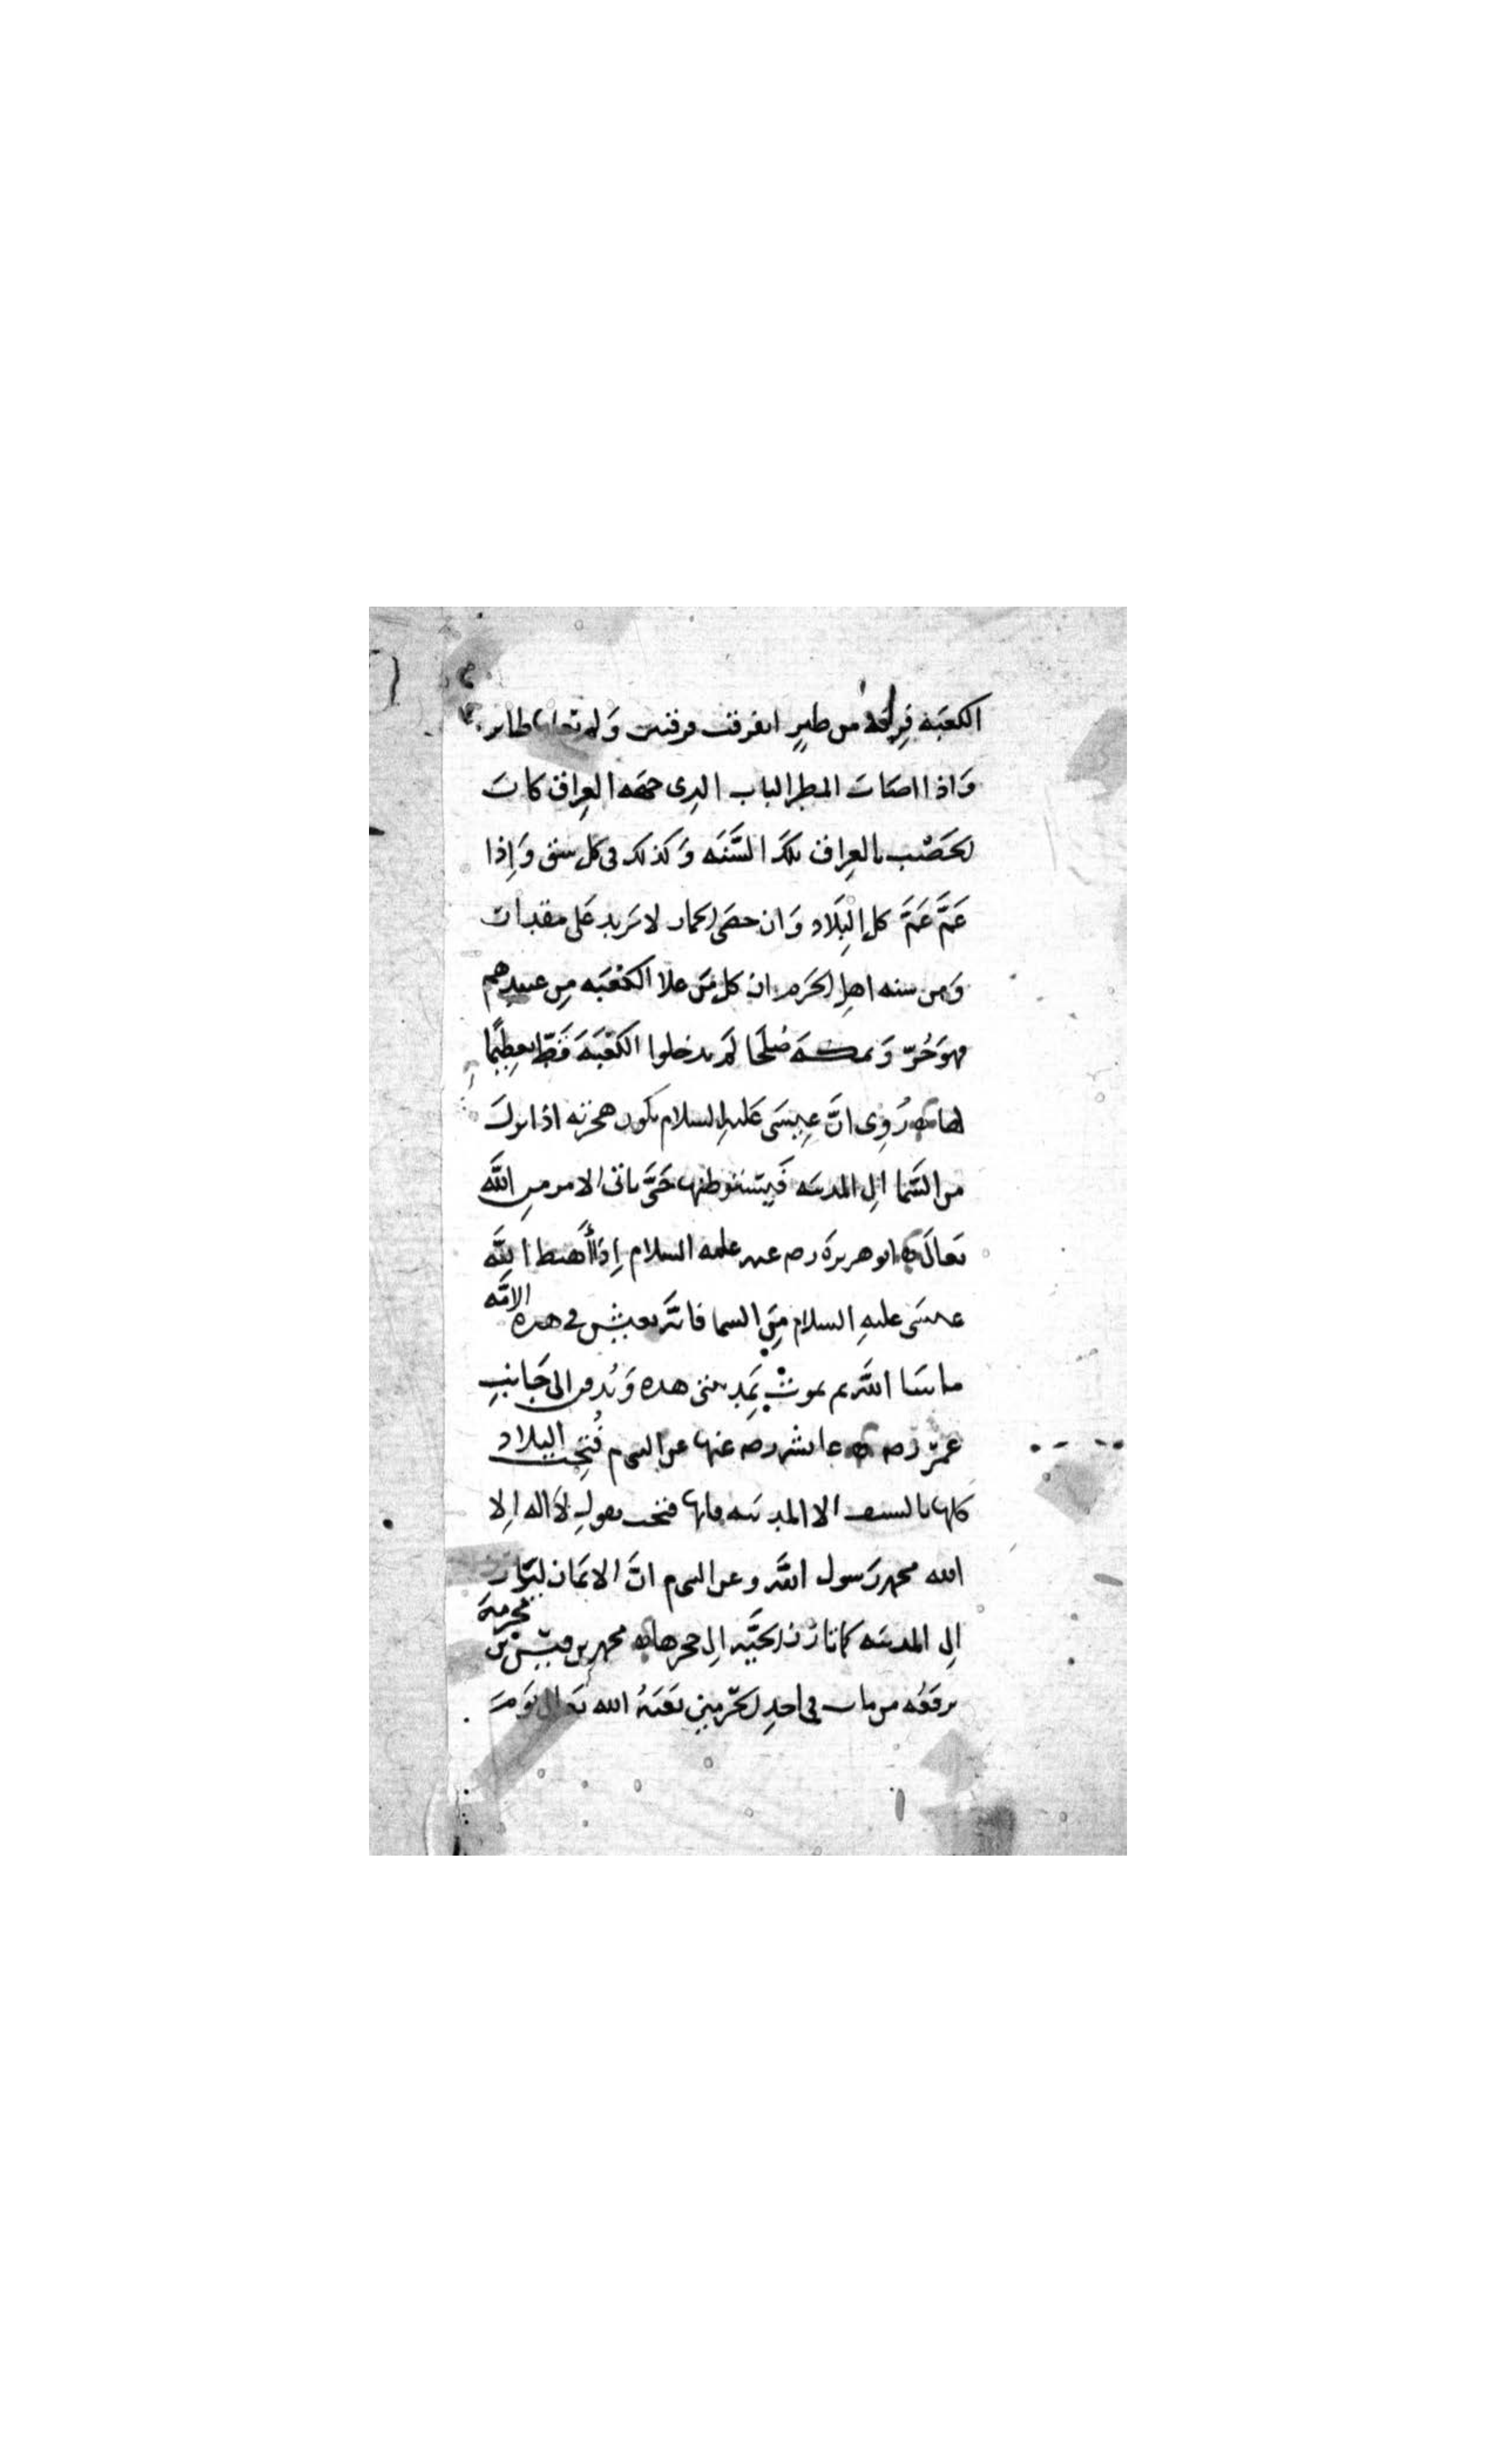 الكعبة فرقة من طير انفرقت فرقتين ولم تعلها طاير
واذا اصاب المطر الباب الذي جهه العراق كان
الخصب بالعراق تلك السَّنَه وَكذلك في كل شق وَاِذا
عَمَّ عَمَّ كل البِلَاد وَان حصَى الجمار لا يزيد عَلى مقدار
وَمن سنه اهل الحَرم ان كل مَن علا الكعْبَه مِن عبيدهم
فهوَ حُرّ وَبمكه صُلَحَا لم يدخلوا الكعْبَهَ قَطّ تعظِيمًا
لها رُوِى انَّ عِيسَى عَليه السلام يكون هجرته اذا نزل
من السَّمَا الى المدينه فَيَستوطنها حَتَّى ياتى الامر من اللَّه
تعَالَى ابو هريرة رضه عنه عليه السلام اِذا أَهبط اللَّه
عيسَى عليهِ السلام مِن السما فانَّه يعيش في هذه الامَّه
ما شا اللَّه ثم يموت بمَدينتى هذه وَيُدفن الى جَانبِ
عمرَ رضه عايشه رضه عنها عن النبى م فُتِحت البلاد
كلها بالسيف الا المدينه فانها فتحت بقول لا اله اِلا
الله محمد رَسول اللَّه وعن النبى م انَّ الايمَان ليَارز
الى المدينه كما تارز الحَيَّه الى جحرها محمد بن قيس بن مخرمة
يرفعُه من مات في احدِ الحَرَمين بَعَثَهُ الله تعَالى يَومَ